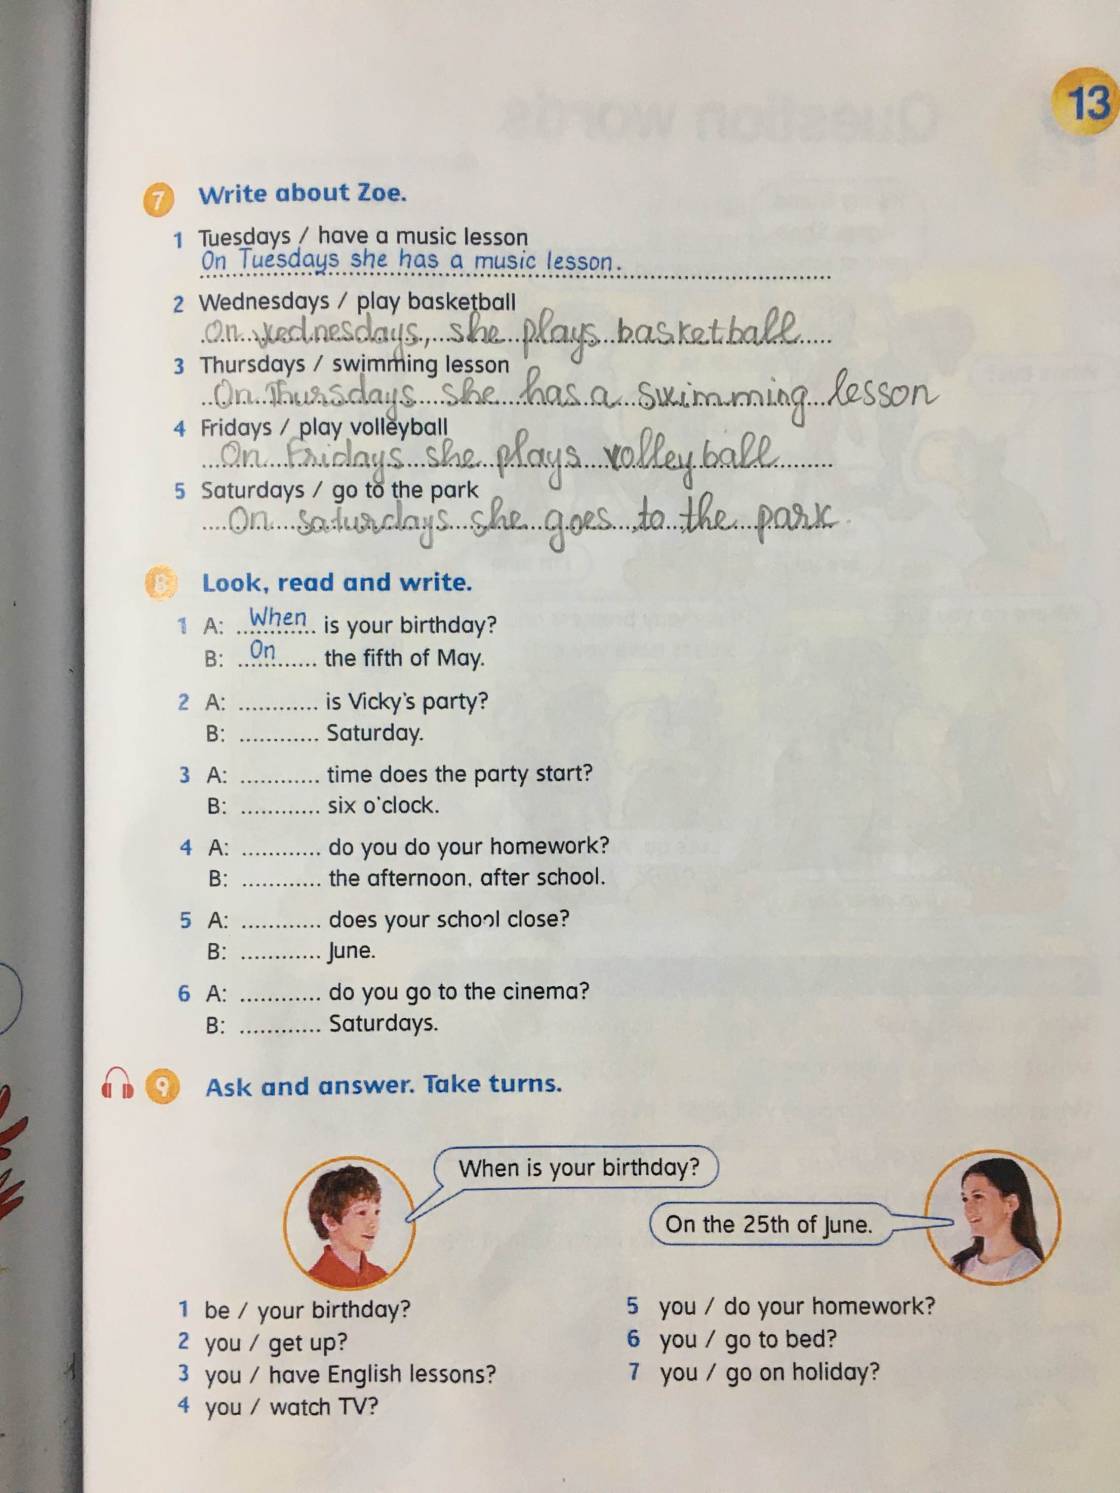 13
7 Write about Zoe.
1 Tuesdays / have a music lesson
On Tuesdays she has a music lesson.
2 Wednesdays / play basketball
On wednesdays, she plays basketball
3 Thursdays / swimming lesson
On Thursdays she has a swimming lesson
4 Fridays / play volleyball
On Fridays she plays volleyball
5 Saturdays / go to the park
On saturdays she goes to the park.
8 Look, read and write.
1 A: When is your birthday?
B: On the fifth of May.
2 A: ............ is Vicky's party?
B: ............ Saturday.
3 A: ............ time does the party start?
B: ............ six o'clock.
4 A: ............ do you do your homework?
B: ............ the afternoon, after school.
5 A: ............ does your school close?
B: ............ June.
6 A: ............ do you go to the cinema?
B: ............ Saturdays.
9 Ask and answer. Take turns.
When is your birthday?
On the 25th of June.
1 be / your birthday?
2 you / get up?
3 you / have English lessons?
4 you / watch TV?
5 you / do your homework?
6 you / go to bed?
7 you / go on holiday?